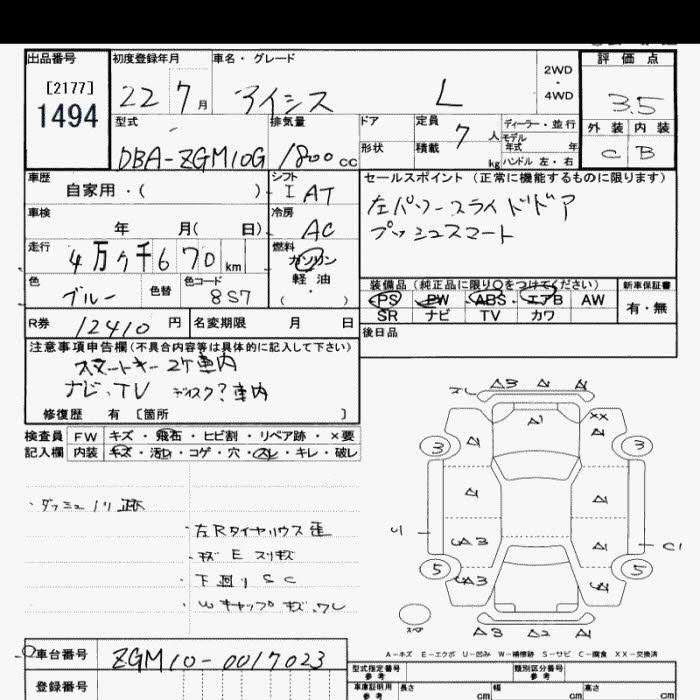 出品番号 初度登録年月 車名・グレード 2WD・4WD 評価点
[2177]
1494
22 7月 アイシス L 3.5
型式 排気量 ドア 定員 7人 ディーラー・並行 外装 内装
モデル年式 年
形状 積載 kg ハンドル 左・右 C B
DBA-ZGM10G 1800cc
車歴 シフト セールスポイント (正常に機能するものに限ります)
自家用・( ) I AT
左パワースライドドア
車検 冷房
年 月( 日) AC
プッシュスマート
走行 燃料
4万 千6 70 km ガソリン
軽油
( ・ )
色 色替 色コード 装備品 (純正品に限り○をつけてください) 新車保証書
ブルー 8S7 PS PW ABS エアB AW 有・無
SR ナビ TV カワ
R券 12410円 名変期限 月 日 後日品
注意事項申告欄(不具合内容等は具体的に記入して下さい)
スマートキー 2ケ車内
ナビ、TV ディスク?車内
修復歴 有 [箇所 ]
検査員 FW キズ・飛石・ヒビ割・リペア跡・×要
記入欄 内装 キズ・汚れ・コゲ・穴・スレ・キレ・破レ
・ダッシュノリ跡
・左Rタイヤハウス歪
・キズ E スリキズ
・下廻り S C
・Wキャップキズ、ワレ
スレ A3 A1 A1
A1 XX
A1 A1
3 3
A1 A1
A3 A1
U1 C1
5 5
A3
A3 A2 A1
スペア
A-キズ E-エクボ U-凹み W-補修跡 S-サビ C-腐食 XX-交換済
車台番号 ZGM10-0017023
型式指定番号 参考 類別区分番号 参考
登録番号 車庫証明用 参考 長さ cm 幅 cm 高さ cm